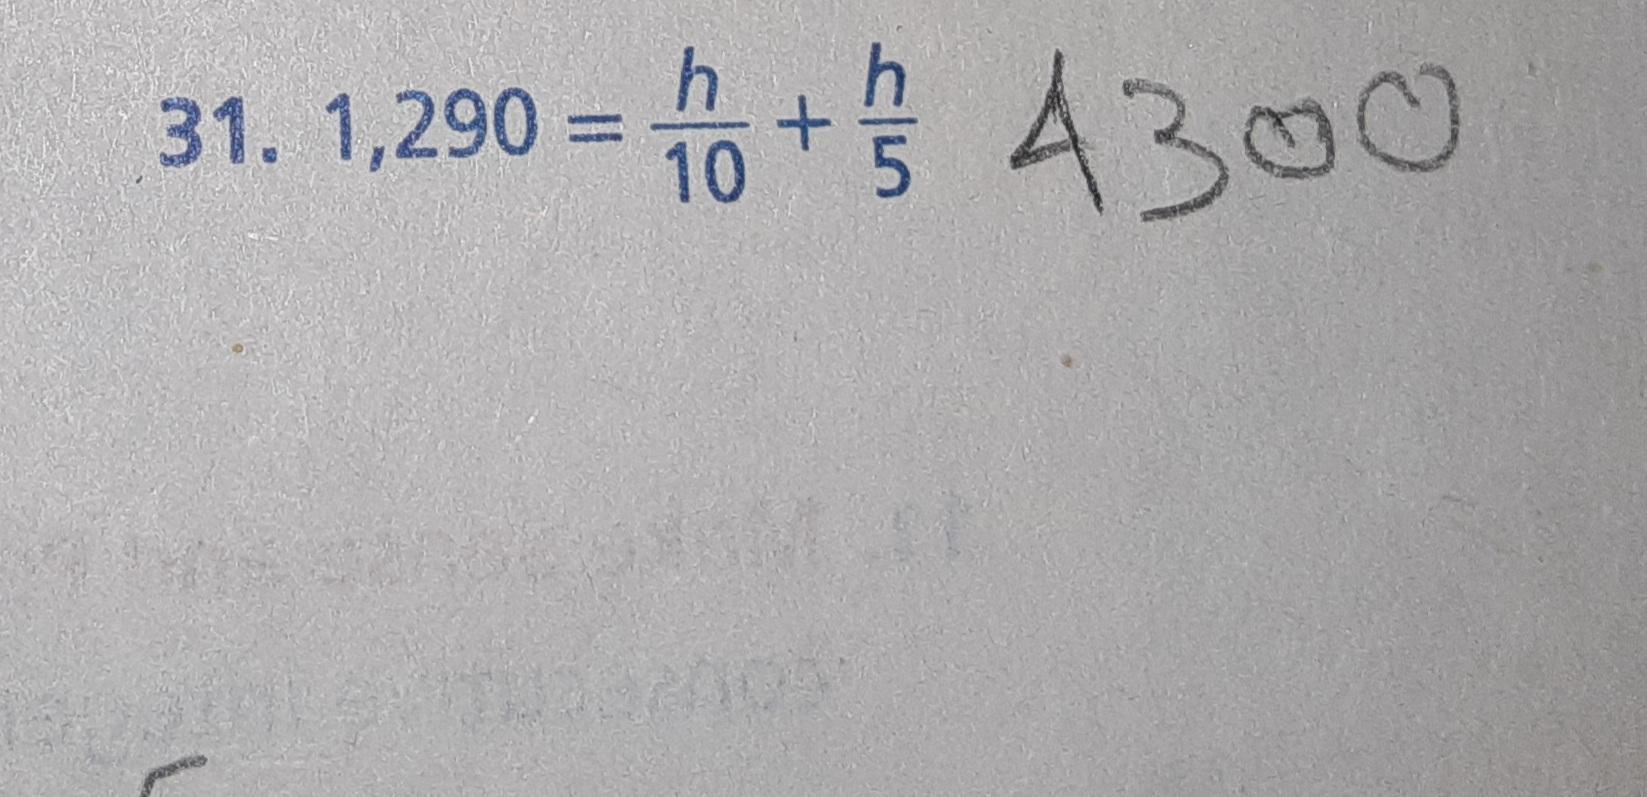 31. 1,290 = h/10 + h/5 4300